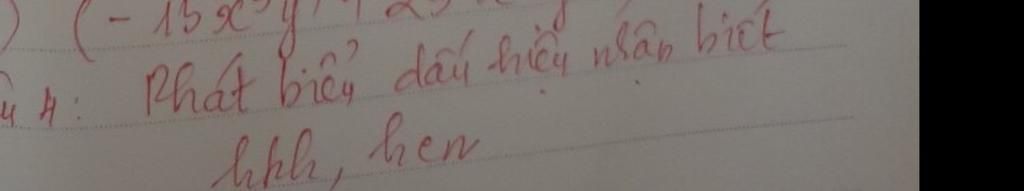 ) (-15x³y
4: Phát biểu dấu hiệu nhận biết
hbh, hcn